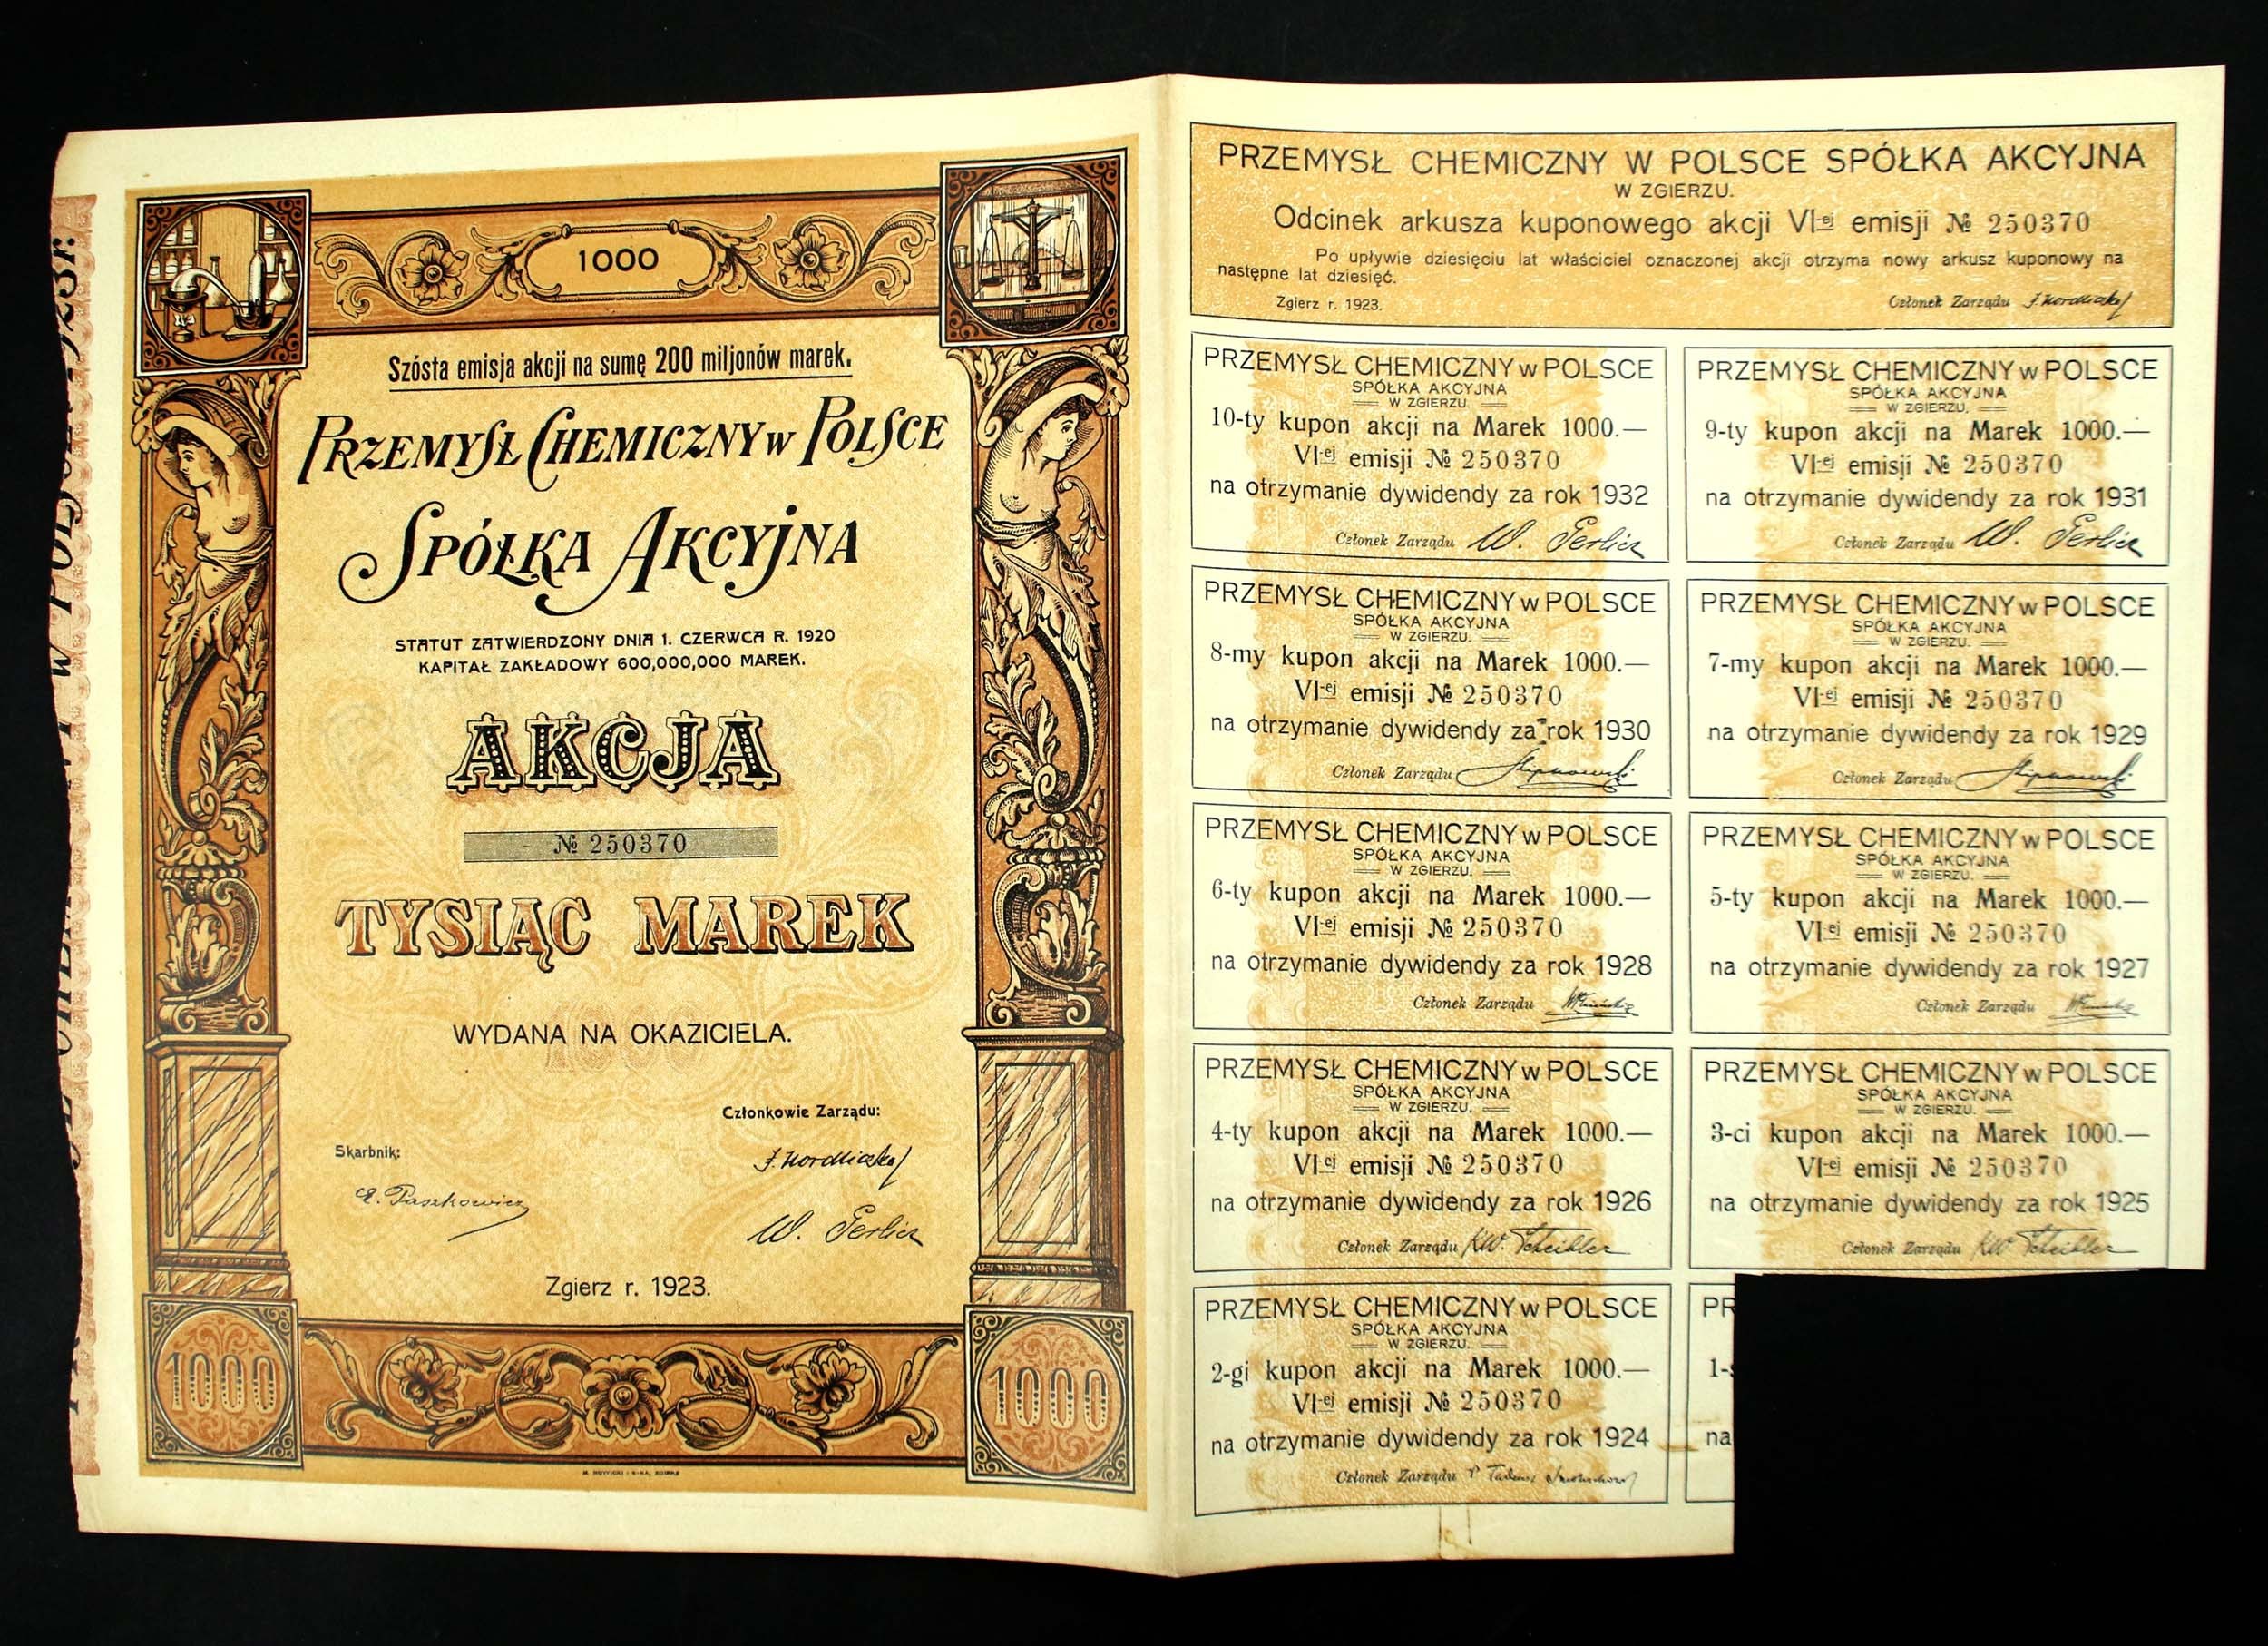 1000
Szósta emisja akcji na sumę 200 miljonów marek.
PRZEMYSŁ CHEMICZNY w POLSCE
SPÓŁKA AKCYJNA
STATUT ZATWIERDZONY DNIA 1. CZERWCA R. 1920
KAPITAŁ ZAKŁADOWY 600,000,000 MAREK.
AKCJA
№ 250370
TYSIĄC MAREK
WYDANA NA OKAZICIELA.
Członkowie Zarządu:
Skarbnik:
E. Paszkowicz
W. Gerlicz
Zgierz r. 1923.
1000
1000
PRZEMYSŁ CHEMICZNY W POLSCE SPÓŁKA AKCYJNA
W ZGIERZU.
Odcinek arkusza kuponowego akcji VI-ej emisji № 250370
Po upływie dziesięciu lat właściciel oznaczonej akcji otrzyma nowy arkusz kuponowy na
następne lat dziesięć.
Zgierz r. 1923.
Członek Zarządu
PRZEMYSŁ CHEMICZNY w POLSCE
SPÓŁKA AKCYJNA
W ZGIERZU.
10-ty kupon akcji na Marek 1000.—
VI-ej emisji № 250370
na otrzymanie dywidendy za rok 1932
Członek Zarządu W. Gerlicz
PRZEMYSŁ CHEMICZNY w POLSCE
SPÓŁKA AKCYJNA
W ZGIERZU.
9-ty kupon akcji na Marek 1000.—
VI-ej emisji № 250370
na otrzymanie dywidendy za rok 1931
Członek Zarządu W. Gerlicz
PRZEMYSŁ CHEMICZNY w POLSCE
SPÓŁKA AKCYJNA
W ZGIERZU.
8-my kupon akcji na Marek 1000.—
VI-ej emisji № 250370
na otrzymanie dywidendy za rok 1930
Członek Zarządu
PRZEMYSŁ CHEMICZNY w POLSCE
SPÓŁKA AKCYJNA
W ZGIERZU.
7-my kupon akcji na Marek 1000.—
VI-ej emisji № 250370
na otrzymanie dywidendy za rok 1929
Członek Zarządu
PRZEMYSŁ CHEMICZNY w POLSCE
SPÓŁKA AKCYJNA
W ZGIERZU.
6-ty kupon akcji na Marek 1000.—
VI-ej emisji № 250370
na otrzymanie dywidendy za rok 1928
Członek Zarządu
PRZEMYSŁ CHEMICZNY w POLSCE
SPÓŁKA AKCYJNA
W ZGIERZU.
5-ty kupon akcji na Marek 1000.—
VI-ej emisji № 250370
na otrzymanie dywidendy za rok 1927
Członek Zarządu
PRZEMYSŁ CHEMICZNY w POLSCE
SPÓŁKA AKCYJNA
W ZGIERZU.
4-ty kupon akcji na Marek 1000.—
VI-ej emisji № 250370
na otrzymanie dywidendy za rok 1926
Członek Zarządu KW. Scheibler
PRZEMYSŁ CHEMICZNY w POLSCE
SPÓŁKA AKCYJNA
W ZGIERZU.
3-ci kupon akcji na Marek 1000.—
VI-ej emisji № 250370
na otrzymanie dywidendy za rok 1925
Członek Zarządu KW. Scheibler
PRZEMYSŁ CHEMICZNY w POLSCE
SPÓŁKA AKCYJNA
W ZGIERZU.
2-gi kupon akcji na Marek 1000.—
VI-ej emisji № 250370
na otrzymanie dywidendy za rok 1924
Członek Zarządu
PR
1-
na